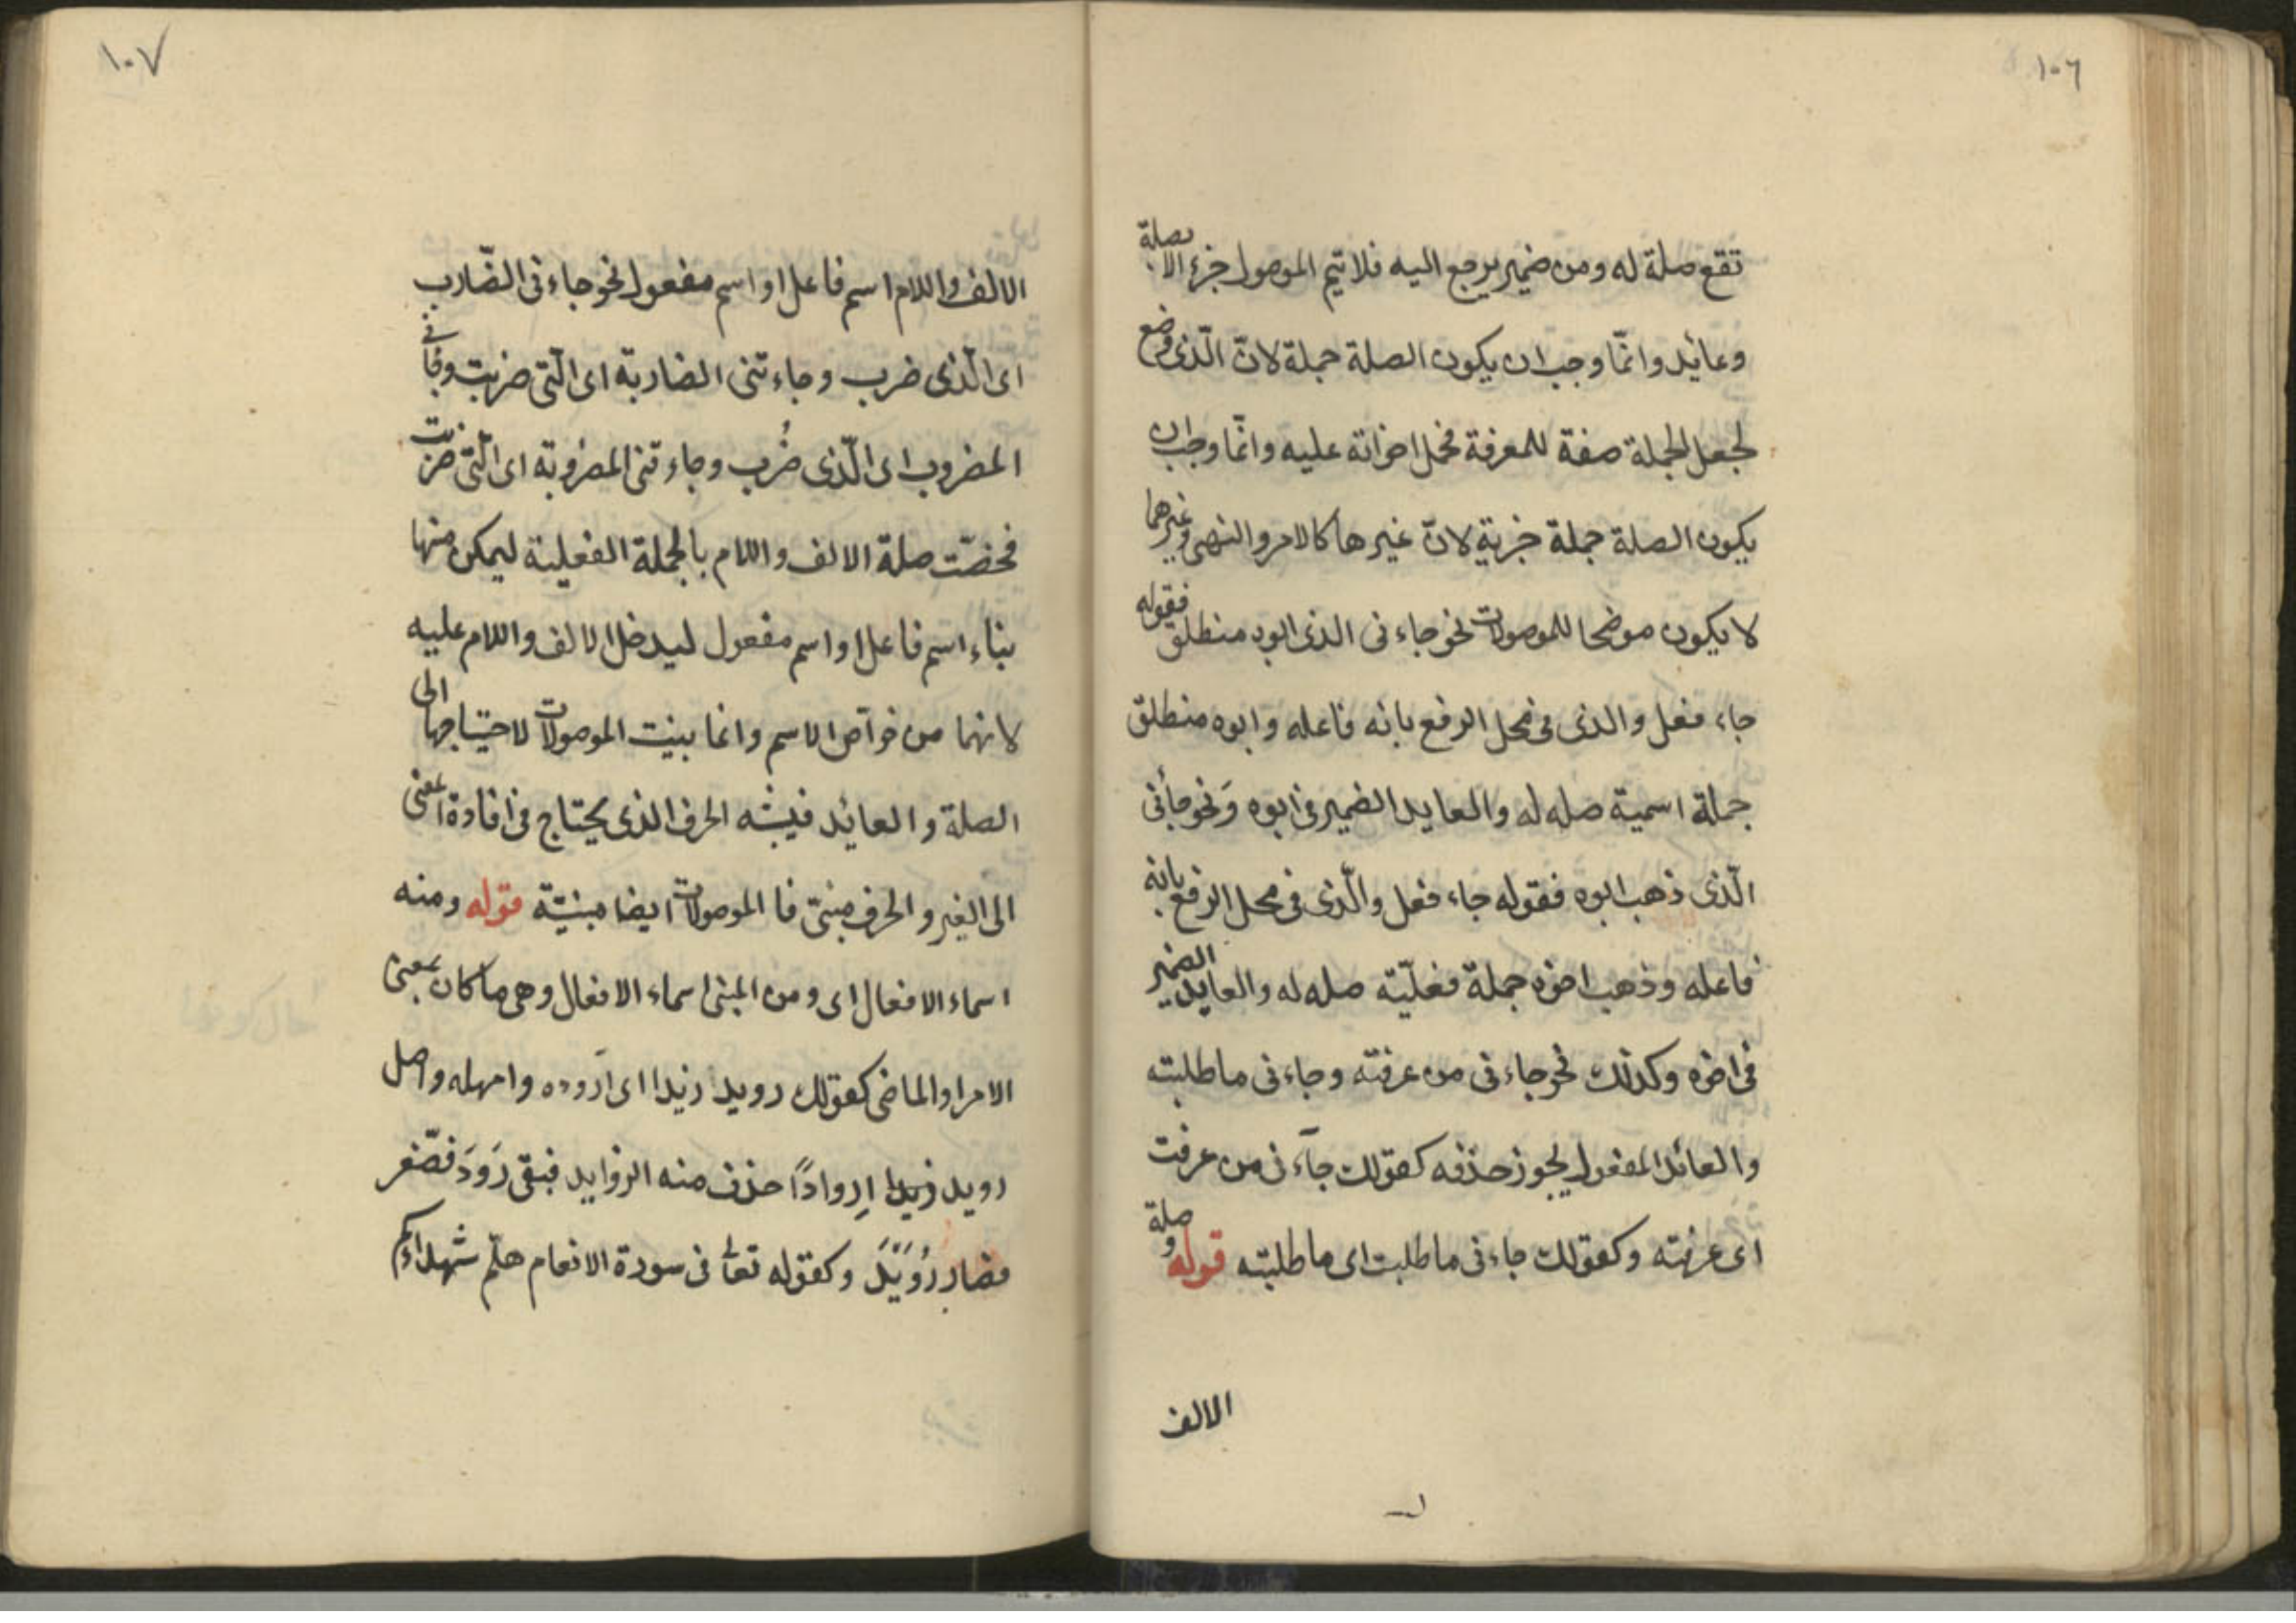 ١٠٦
تقع صلة له ومن ضمير يرجع اليه فلا يتم الموصول جزء الا بصلة
وعائد وانّما وجب ان يكون الصلة جملة لانّ الّذى وضع
لجعل الجملة صفة للمعرفة فحمل اخواته عليه وانّما وجب ان
يكون الصلة جملة خبرية لانّ غيرها كالامر والنهى وغيرهما
لا يكون موضحا للموصولات نحو جاءنى الذى ابوه منطلق فقوله
جاء فعل والذى فى محل الرفع بانه فاعله وابوه منطلق
جملة اسمية صله له والعايد الضمير فى ابوه ونحو جائنى
الّذى ذهب ابوه فقوله جاء فعل والّذى فى محل الرفع بانه
فاعله وذهب اخوه جملة فعليّة صله له والعايد الضمير
فى اخوه وكذلك نحو جاءنى من عرفته وجاءنى ما طلبته
والعائد المفعول يجوز حذفه كقولك جآءنى من عرفت
اى عرفته وكقولك جاءنى ما طلبت اى ما طلبته قوله وصلة
الالف
١٠٧
الالف واللام اسم فاعل او اسم مفعول نحو جاءنى الضّارب
اى الّذى ضرب وجاءتنى الضاربة اى الّتى ضربت وجأنى
المضروب اى الّذى ضُرب وجاءتنى المضروبة اى الّتى ضربت
فخصّت صلة الالف واللام بالجملة الفعلية ليمكن منها
بناء اسم فاعل او اسم مفعول ليدخل الالف واللام عليه
لانهما من خواصّ الاسم وانما بنيت الموصولات لاحتياجها الى
الصلة والعائد فيشبه الحرف الذى يحتاج فى افادة المعنى
الى الغير والحرف مبنىّ فا الموصولات ايضا مبنيّة قوله ومنه
اسماء الافعال اى ومن المبنى اسماء الافعال وهى ما كان بمعنى
الامر او الماضى كقولك رويد زيدا اى اروده وامهله واصل
رويد زيدا اِروادًا حذف منه الزوايد فبقى رَوَدَ فصّغر
فصار رُوَيْدَ وكقوله تعالى فى سورة الانعام هلّم شهداءكم